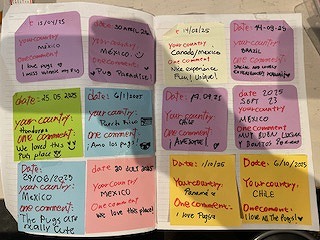 date: 15/04/25
your country
MÉXICO
one comment:
Like pugs ♥
I miss winnie my Pug
date 30 ABRIL 25
your country
MÉXICO.
one comment:
♥ Pug Paradise! ♥
date: 25.05.2025
your country:
Honduras
one comment:
We loved this
Pug place
date: 6/1/2025
your country:
Puerto Rico
one comment:
¡Amo los pugs!
date:
29/08/2025
your country
Mexico
one comment:
The Pugs are
really cute
date 30 JULY 2025
your country
MEXICO
one comment:
We love this place!
your country
Canada/Mexico
one comment
Nice experience
Fun! Unique!
date: 14-08-25
your country
BRAZIL
one comment:
date: 17.09.25
your country
CHILE
one comment
¡Awesome!
date 2025
SEPT 23
your country
MEXICO
one comment:
MUY BUEN LUGAR
Y BONITOS
Date: 1/10/25
Your country:
Panamá
one comment:
I love Pugs
Date: 6/10/2025
Your country:
CHILE
one comment:
I love all The Pugs!